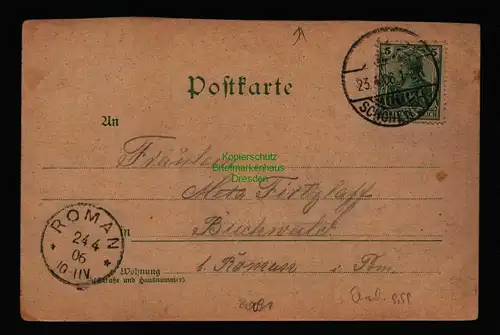 5 5
23.4.06
SCHÖNEB
Postkarte
An
Fräulein
Kopierschutz
Briefmarkenhaus
Dresden
Meta Firtzlaff
in Buchwald
Wohnung b. Roman i. Pom.
(Straße und Hausnummer)
* ROMAN *
24 4
06
10-11V.